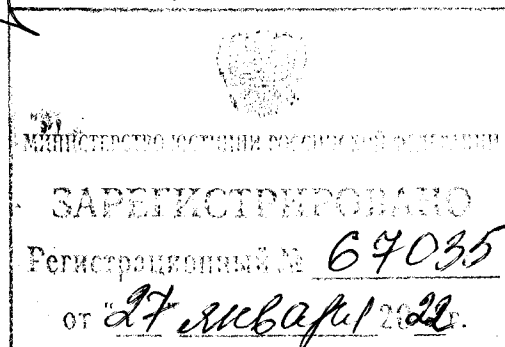 МИНИСТЕРСТВО ЮСТИЦИИ РОССИЙСКОЙ ФЕДЕРАЦИИ
ЗАРЕГИСТРИРОВАНО
Регистрационный № 67035
от "27 января 2022 г.